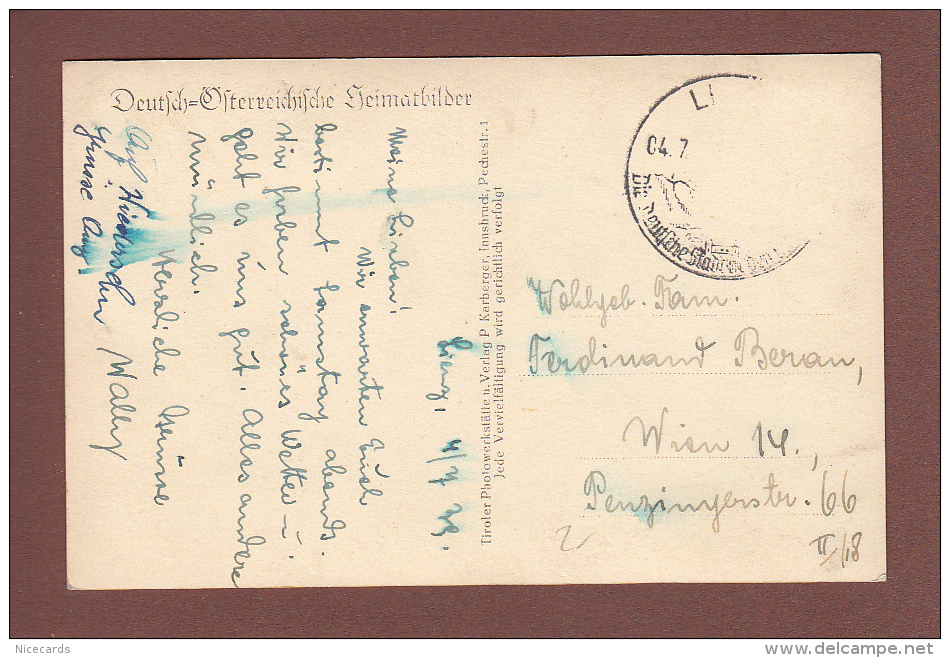 Deutsch=Österreichische Heimatbilder
Lienz, 4/7 39.
Meine Lieben!
Wir erwarten Euch
bestimmt Samstag abends.
Wir haben schönes Wetter u.
geht es uns gut. Alles andere
mündlich.
Herzliche Grüsse
Wally
Auf Wiedersehen
Tiroler Photowerkstätte u. Verlag P Karberger, Innsbruck, Pechestr. 1
Jede Vervielfältigung wird gerichtlich verfolgt
LI
04.7
Die deutsche Stadt
Wohlgeb. Fam.
Ferdinand Beran,
Wien 14.,
Penzingerstr. 66
II/18
Nicecards
www.delcampe.net